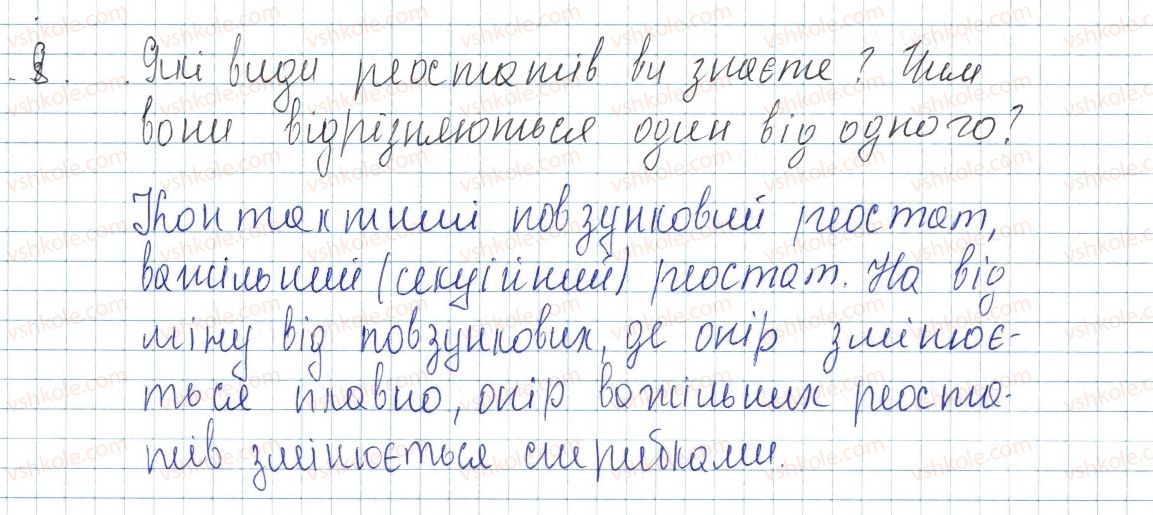 8. Які види реостатів ви знаєте? Чим
вони відрізняються один від одного?
Контактний повзунковий реостат,
важільний (секційний) реостат. На від
міну від повзункових, де опір змінює-
ться плавно, опір важільних реоста-
тів змінюється стрибками.